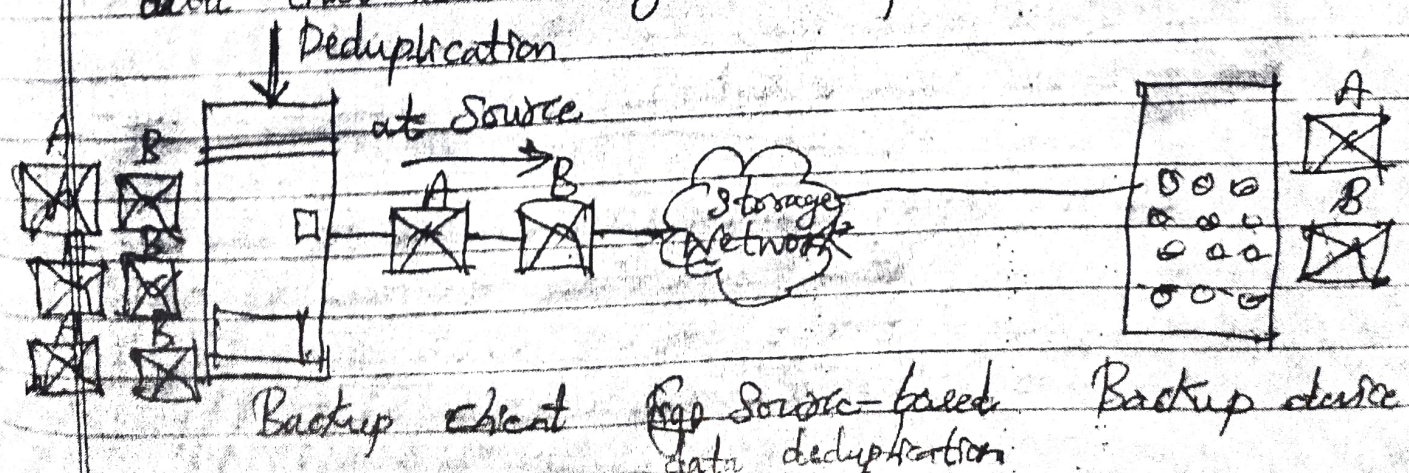 Deduplication
at Source
A B
A B
A B
A B
Storage
Network
A
B
Backup client
Source-based
data deduplication
Backup device